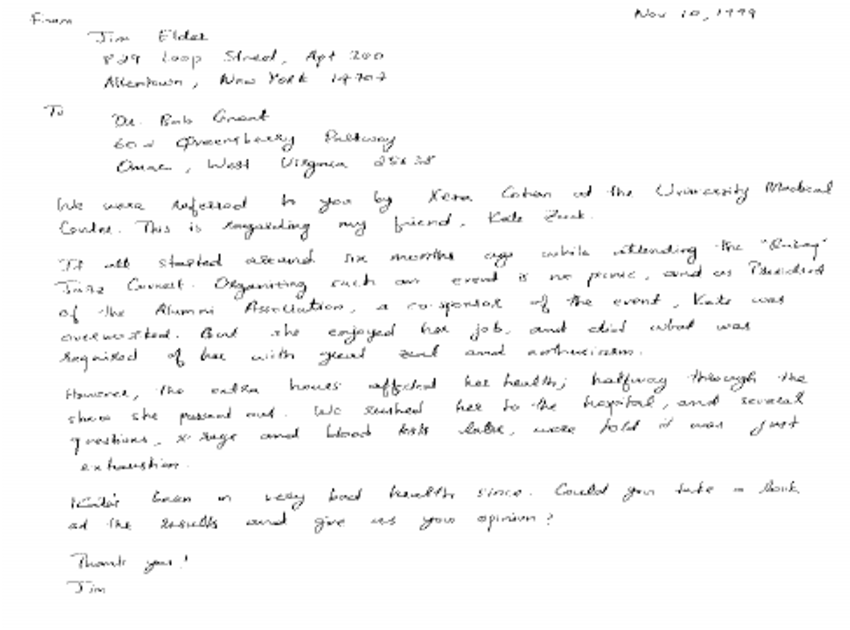 From
Nov 10, 1999
Jim Elder
829 Loop Street, Apt 300
Allentown, New York 14707
To
Dr. Bob Grant
602 Queensberry Parkway
Omar, West Virginia 25638
We were referred to you by Xena Cohen at the University Medical
Centre. This is regarding my friend, Kate Zack.
It all started around six months ago while attending the "Rubeq"
Jazz Concert. Organizing such an event is no picnic, and as President
of the Alumni Association, a co-sponsor of the event, Kate was
overworked. But she enjoyed her job, and did what was
required of her with great zeal and enthusiasm.
However, the extra hours affected her health; halfway through the
show she passed out. We rushed her to the hospital, and several
questions, x-rays and blood tests later, were told it was just
exhaustion.
Kate's been in very bad health since. Could you take a look
at the results and give us your opinion?
Thank you!
Jim